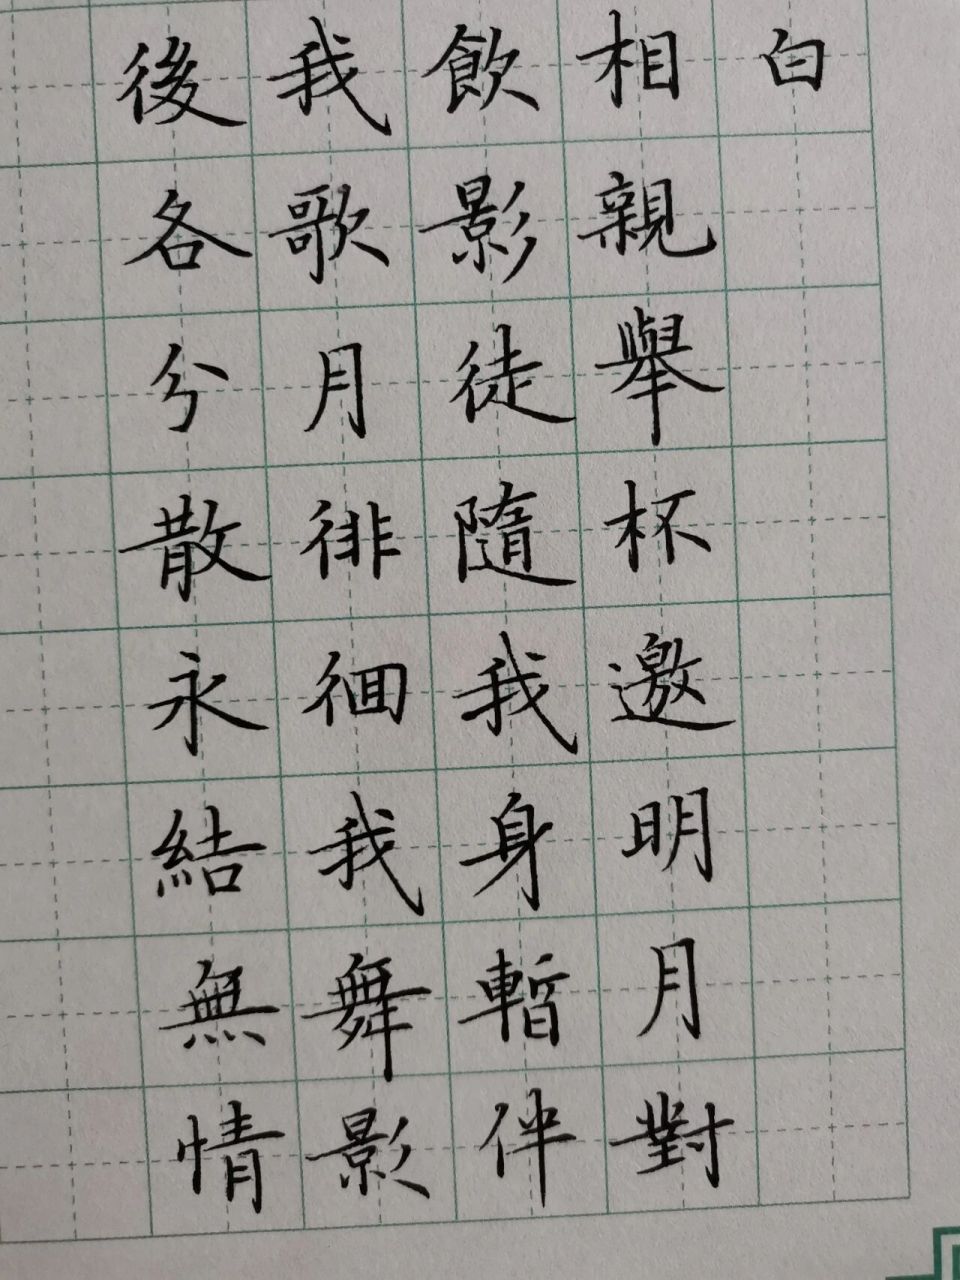 白
相親舉杯邀明月對
飲影徒隨我身暫伴
我歌月徘徊我舞影
後各分散永結無情